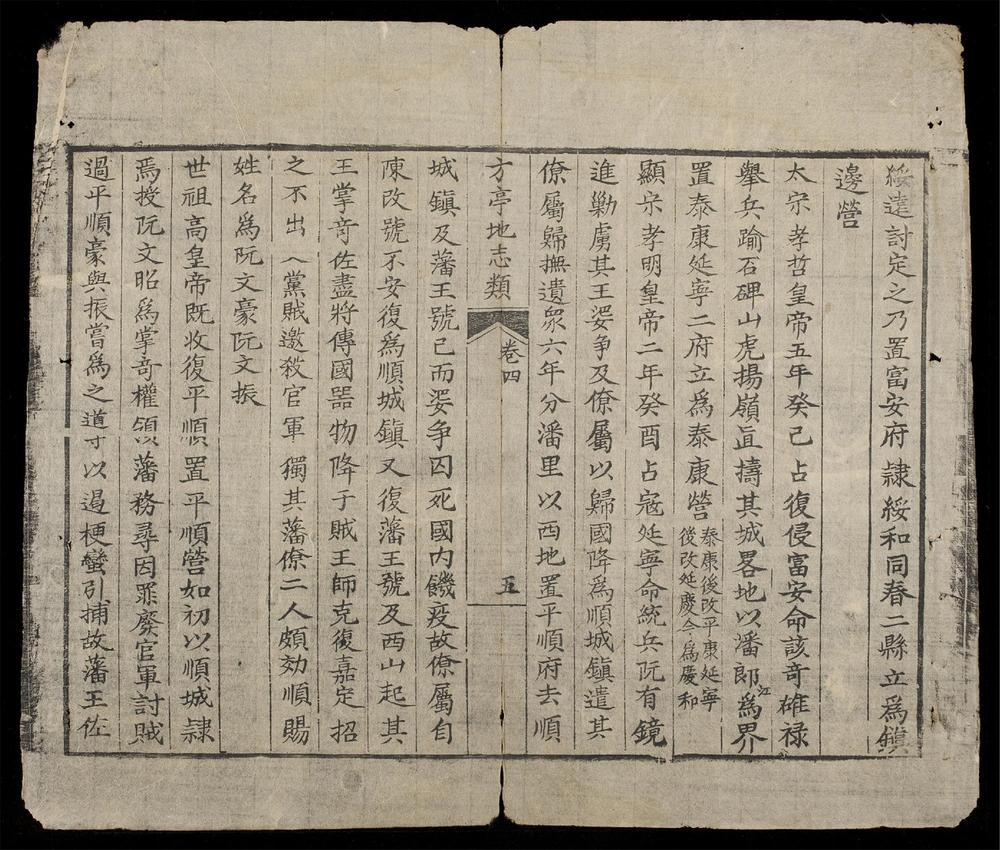 綏遠討定之乃置富安府隸綏和同春二縣立為鎮
邊營
太宗孝哲皇帝五年癸巳占復侵富安命該奇雄禄
舉兵踰石碑山虎揚嶺直擣其城畧地以潘郎江為界
置泰康延寧二府立為泰康營泰康後改平康延寧
後改延慶今為慶和
顯宗孝明皇帝二年癸酉占寇延寧命統兵阮有鏡
進勦虜其王婆争及僚屬以歸國降為順城鎮遣其
僚屬歸撫遺衆六年分潘里以西地置平順府去順
方亭地志類 卷四 五
城鎮及藩王號已而婆争囚死國內饑疫故僚屬自
陳改號不安復為順城鎮又復藩王號及西山起其
王掌奇佐盡將傳國器物降于賊王師克復嘉定招
之不出 黨賊邀殺官軍獨其藩僚二人頗効順賜
姓名為阮文豪阮文振
世祖高皇帝既收復平順置平順營如初以順城隸
焉授阮文昭為掌奇權領藩務尋因罪廢官軍討賊
過平順豪與振嘗為之導以遏梗蠻引捕故藩王佐